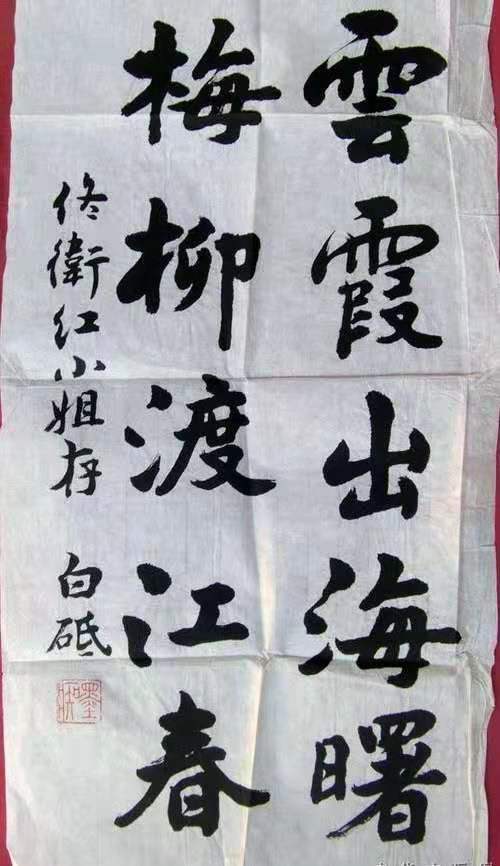 雲霞出海曙
梅柳渡江春
佟衛红小姐存 白砥